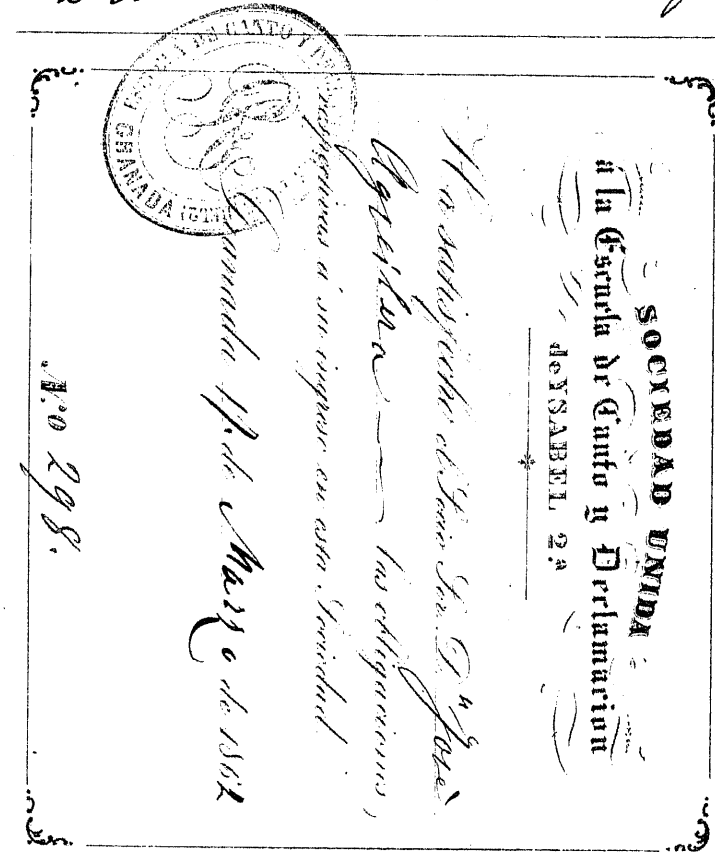 SOCIEDAD UNIDA
á la Escuela de Canto y Declamacion
de YSABEL 2.ª
Ha satisfecho el Socio Sor. Dn José
Aguilera las obligaciones,
respectivas á su ingreso en esta Sociedad.
Granada 17 de Marzo de 1862
N.º 298.
ESCUELA DE CANTO Y
GRANADA